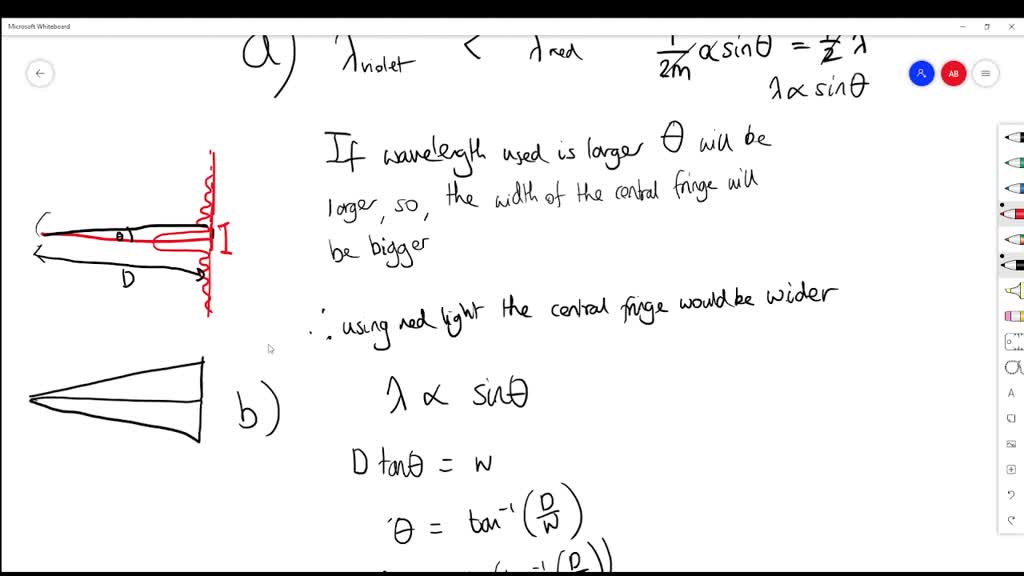 Microsoft Whiteboard
a) λviolet < λred 1/2m α sinθ = 1/2 λ
AB
λ ∝ sinθ
If wavelength used is larger θ will be
larger, so, the width of the central fringe will
be bigger
θ I
D
∴ using red light the central fringe would be wider
b) λ ∝ sinθ
D tanθ = W
θ = tan⁻¹(D/W)